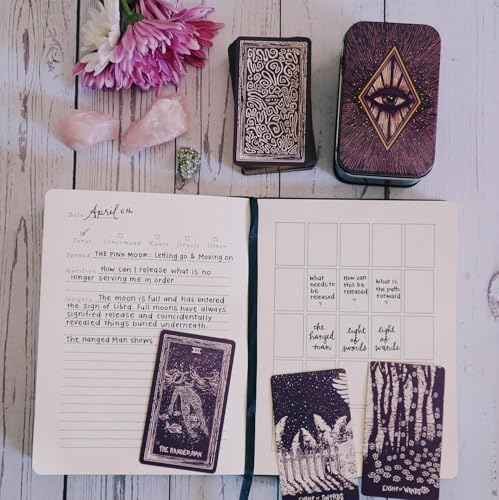 Date April 6th
Tarot Lenormand Runes Oracle Other
Spread THE PINK MOON: Letting go & Moving on
Question How can I release what is no
longer serving me in order
Insights The moon is full and has entered
the sign of Libra. Full moons have always
signified release and coincidentally
revealed things buried underneath.
The Hanged Man shows
What needs to be released ?
How can this be released ?
What is the path forward ?
the hanged man
eight of swords
eight of wands
XII
THE HANGED MAN
EIGHT of SWORDS
EIGHT of WANDS